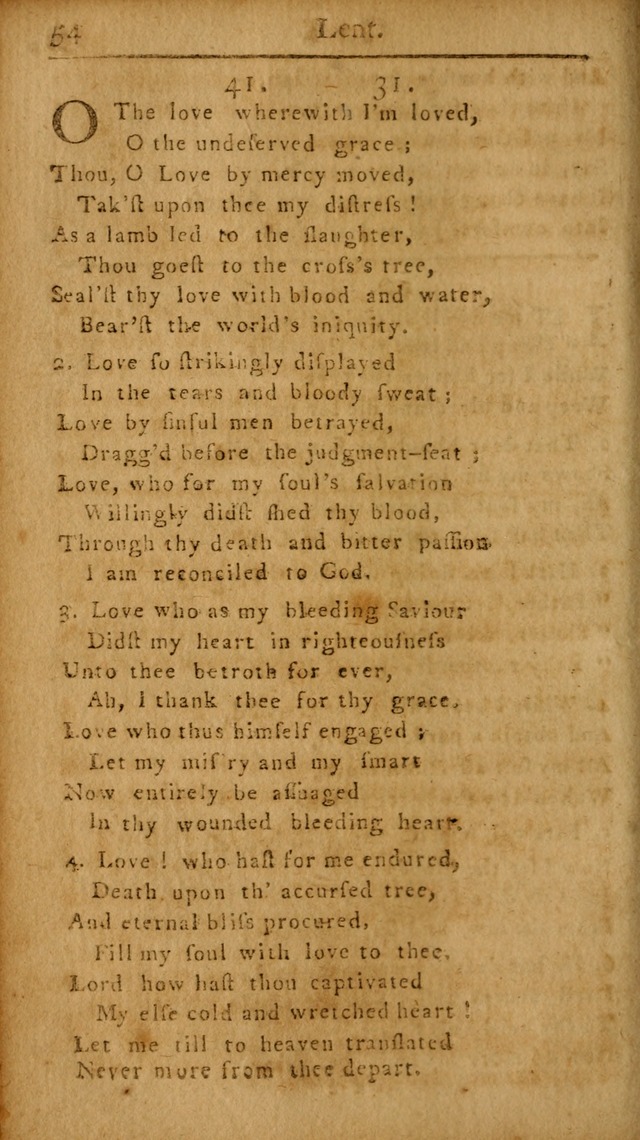 54 Lent.
41. - 31.
O The love wherewith I'm loved,
O the undeſerved grace ;
Thou, O Love by mercy moved,
Tak'ſt upon thee my diſtreſs !
As a lamb led to the ſlaughter,
Thou goeſt to the croſs's tree,
Seal'ſt thy love with blood and water,
Bear'ſt the world's iniquity.
2. Love ſo ſtrikingly diſplayed
In the tears and bloody ſweat ;
Love by ſinful men betrayed,
Dragg'd before the judgment-ſeat ;
Love, who for my ſoul's ſalvation
Willingly didſt ſhed thy blood,
Through thy death and bitter paſſion
I am reconciled to God.
3. Love who as my bleeding Saviour
Didſt my heart in righteouſneſs
Unto thee betroth for ever,
Ah, I thank thee for thy grace.
Love who thus himſelf engaged ;
Let my miſ'ry and my ſmart
Now entirely be aſſuaged
In thy wounded bleeding heart.
4. Love ! who haſt for me endured,
Death upon th' accurſed tree,
And eternal bliſs procured,
Fill my ſoul with love to thee.
Lord how haſt thou captivated
My elſe cold and wretched heart !
Let me till to heaven tranſlated
Never more from thee depart.